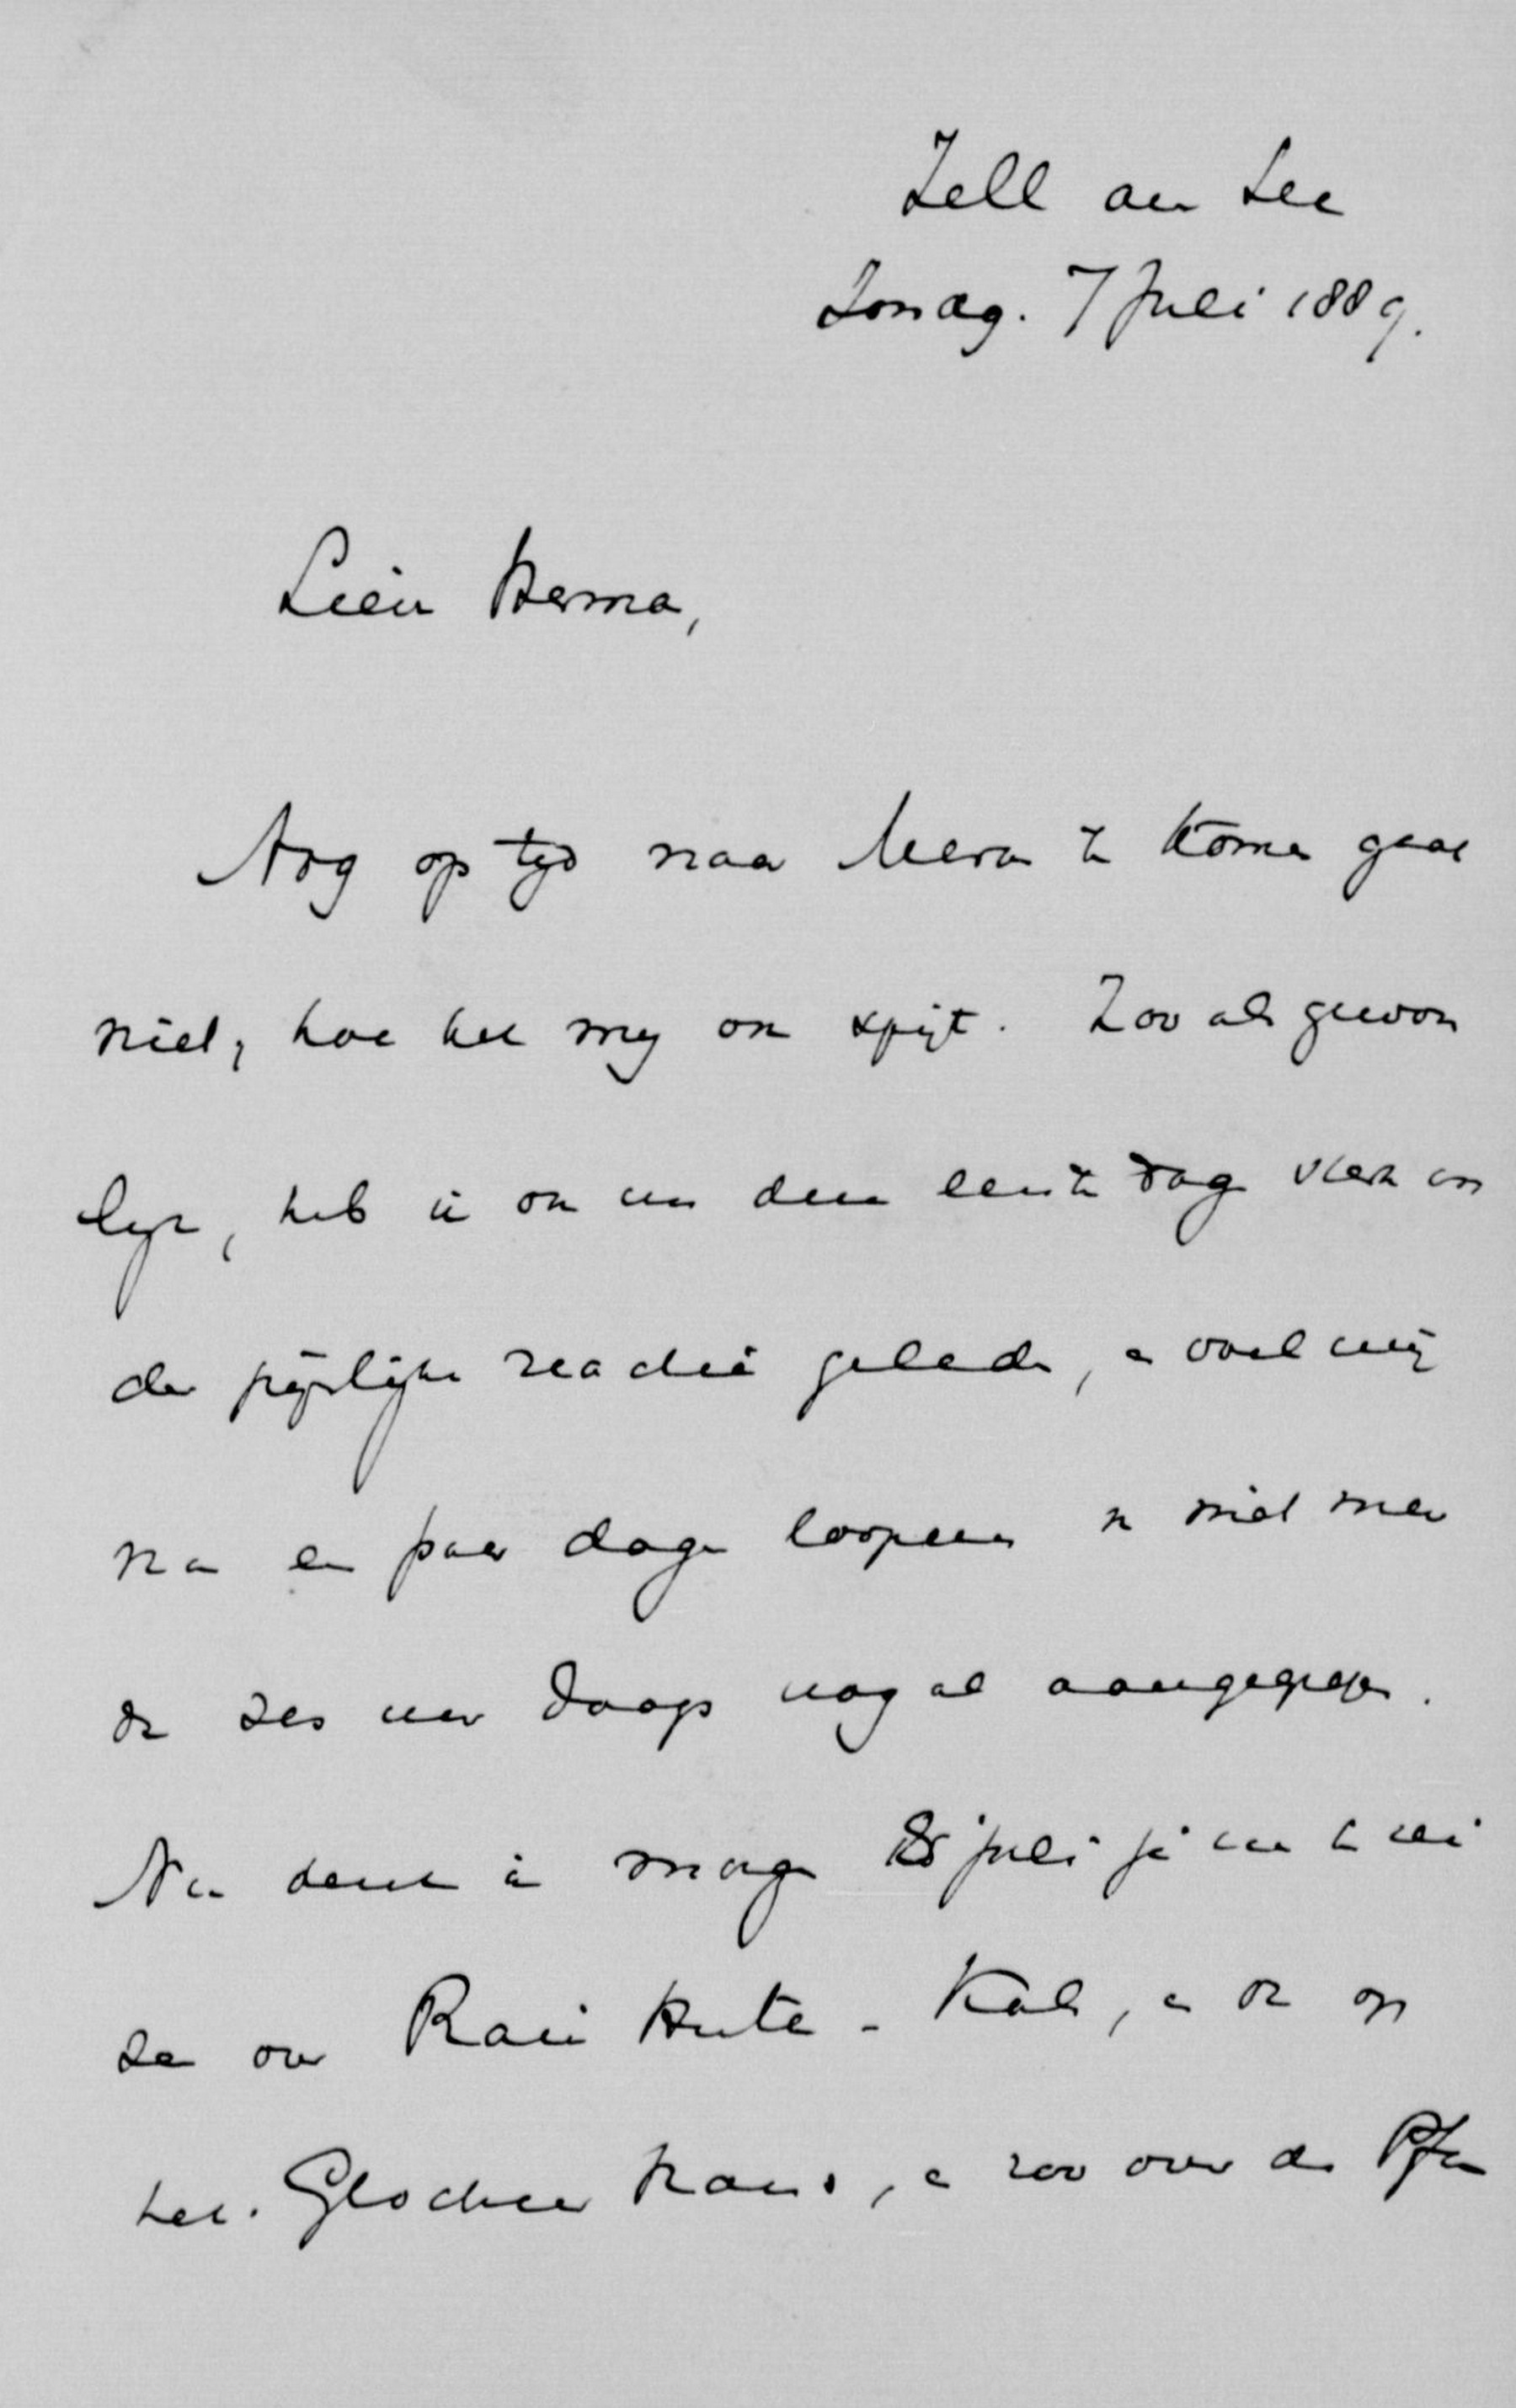 Zell am See
Zondag. 7 Juli 1889.
Lieve Herma,
Nog op tijd naar Meran te komen gaat
niet, hoe het mij ook spijt. Zooals gewoon
lijk, heb ik ook nu deze eerste dagen
de pijnlijke reactie geleden, en voel mij
na een paar dagen loopens niet meer
zes uur daags nog al aangegrepen.
Nu denk ik morgen 8 juli
over Kals, en op
het Glocknerhaus, en zoo over de Pfan